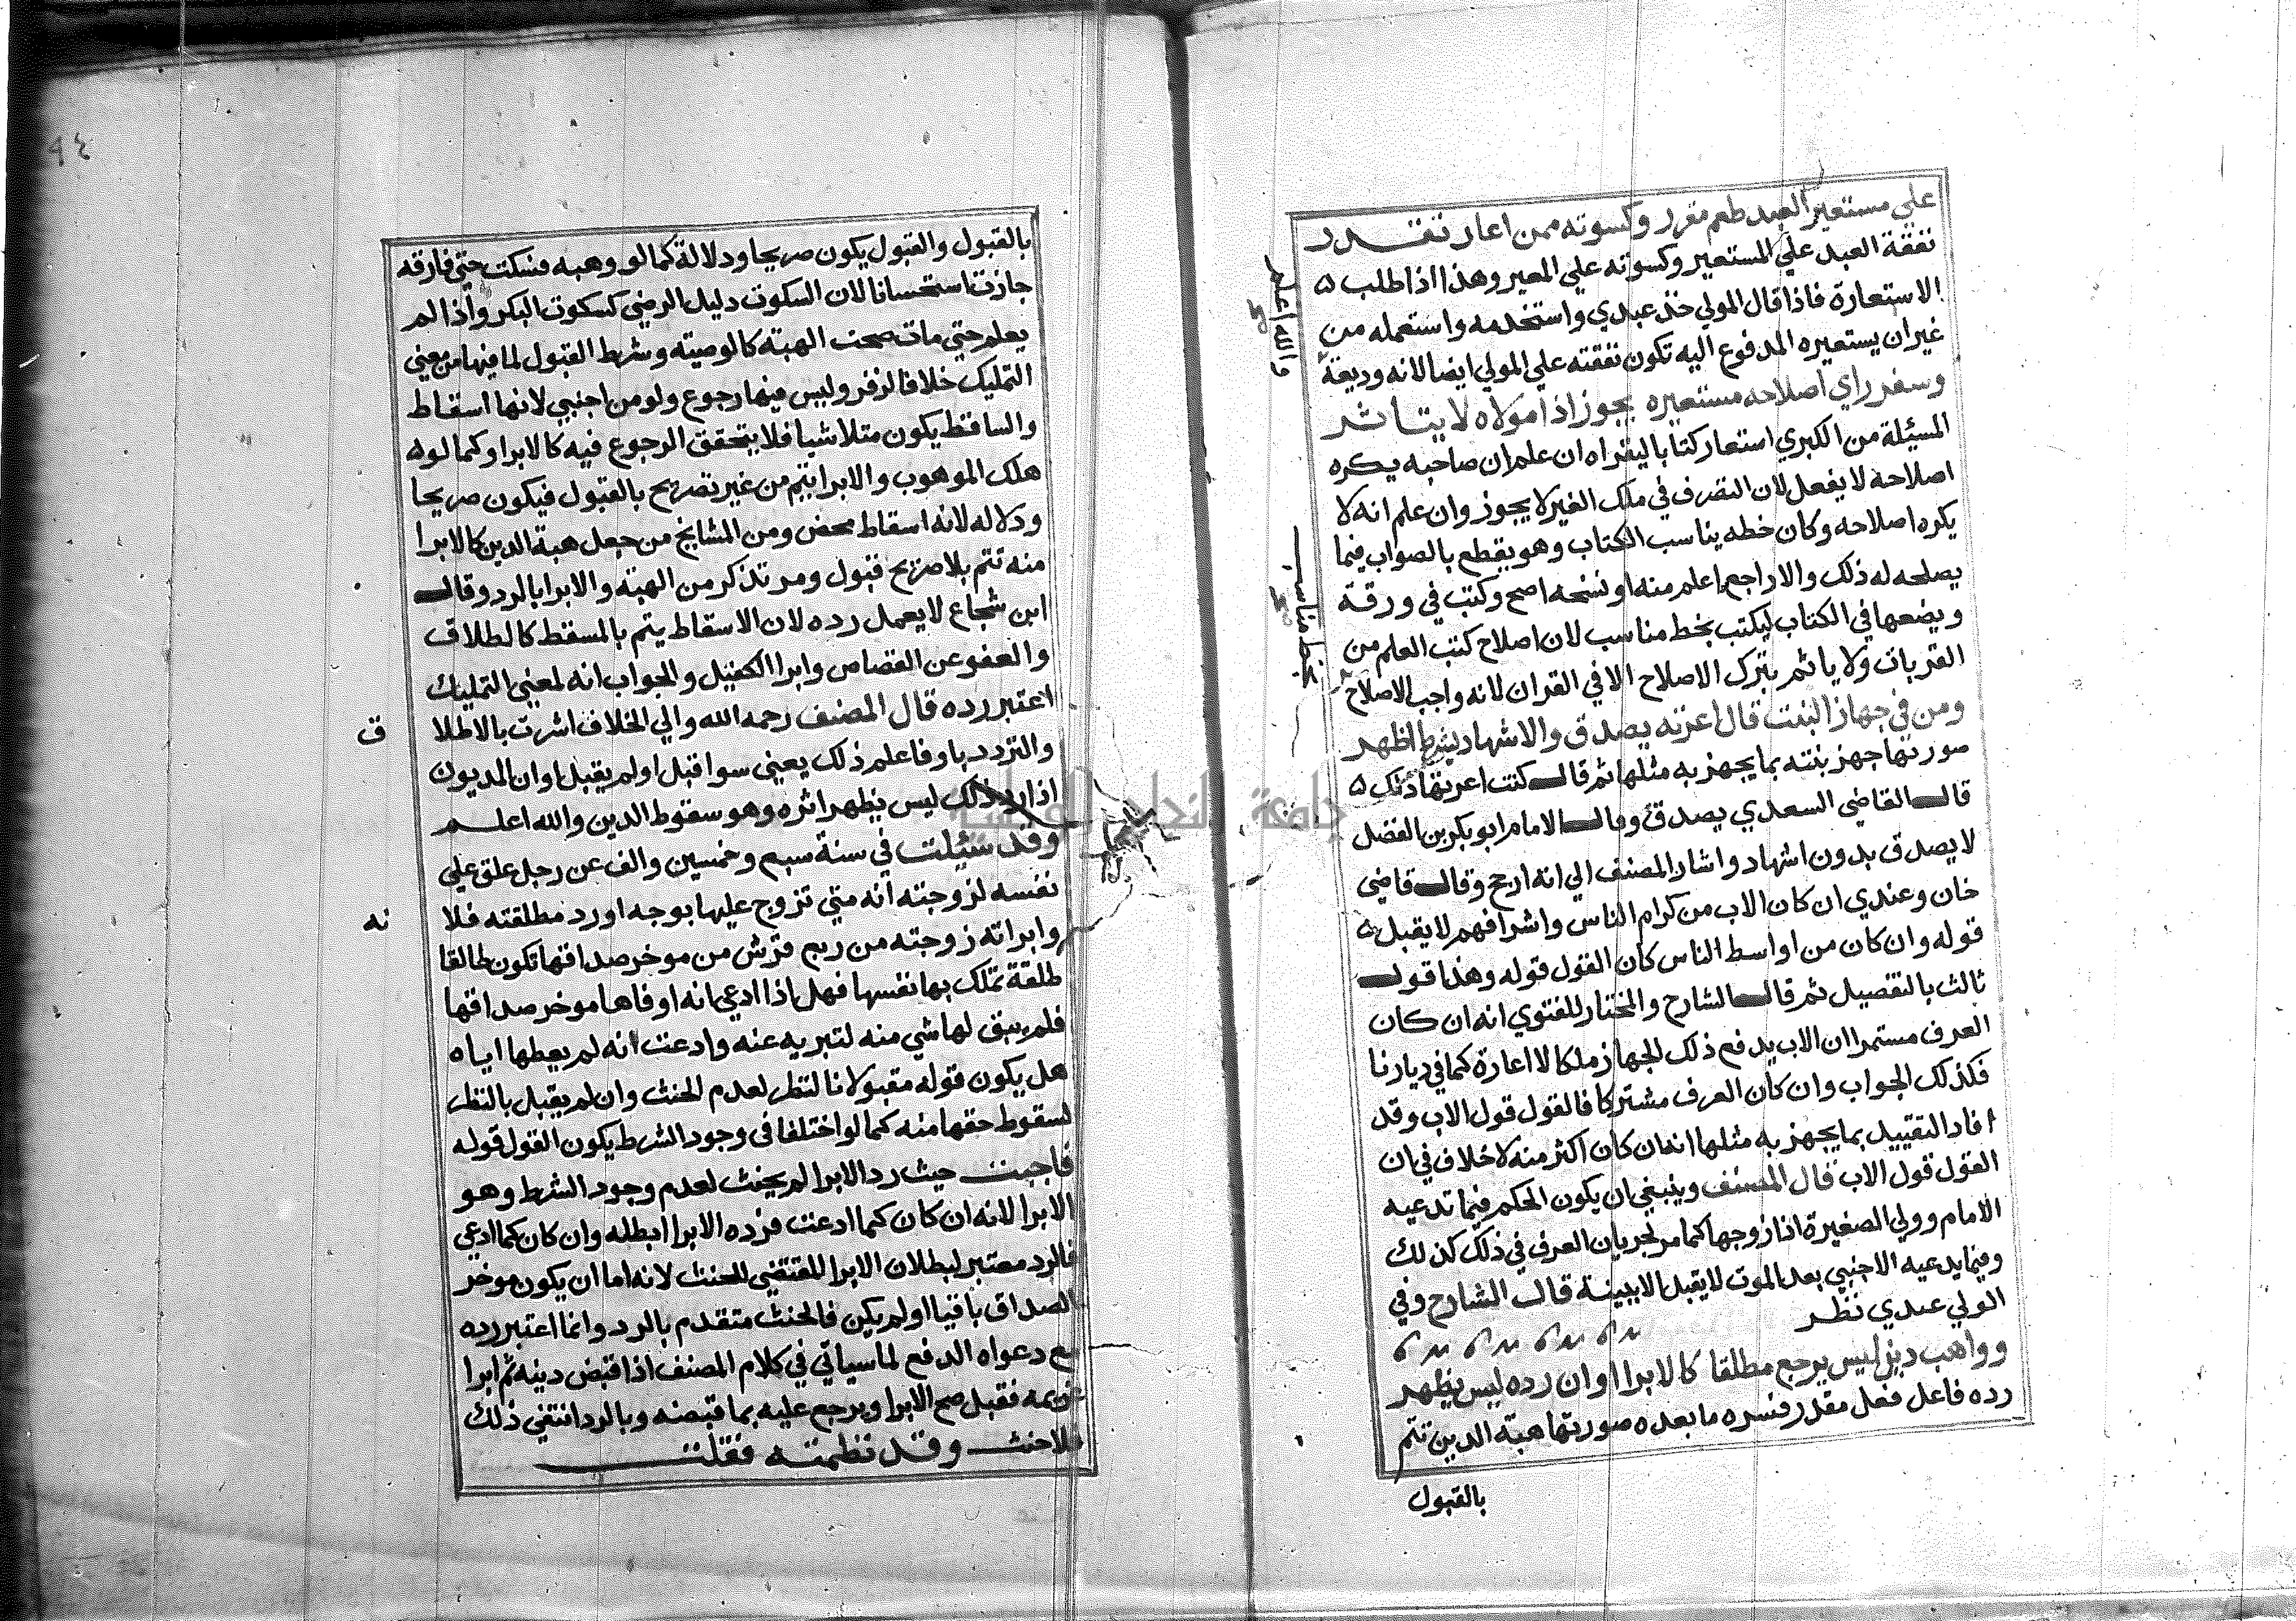 علي مستعير العبد طعم مقرر وكسوته ممن اعار تقدر
نفقة العبد علي المستعير وكسوته علي المعير وهذا اذا طلب
الاستعارة فاذا قال المولي خذ عبدي واستخدمه واستعمله من
غير ان يستعيره المدفوع اليه تكون نفقته علي المولي ايضا لانه وديعة
والله اعلم
صح
وسفر راي اصلاحه مستعيره يجوز اذا مولاه لا يتاثر
المسئلة من الكبري استعار كتابا ليقراه ان علم ان صاحبه يكره
اصلاحه لا يفعل لان التصرف في ملك الغير لا يجوز وان علم انه لا
يكره اصلاحه وكان خطه يناسب الكتاب وهو يقطع بالصواب فيما
يصلحه له ذلك والا راجع اعلم منه او نسخه اصح وكتب في ورقة
ويضعها في الكتاب ليكتب بخط مناسب لان اصلاح كتب العلم من
القربات ولا ياثم بترك الاصلاح الا في القران لانه واجب الاصلاح
بخط مناسب
صح
ومن في جهاز البنت قال اعرته يصدق والاشهاد يشرط اظهر
صورتها جهز بنته بما يجهز به مثلها ثم قال كنت اعرتها ذلك
قال القاضي السعدي يصدق وقال الامام ابو بكر بن الفضل
لا يصدق بدون اشهاد واشار المصنف الي انه ارجح وقال قاضي
خان وعندي ان كان الاب من كرام الناس واشرافهم لا يقبل
قوله وان كان من اواسط الناس كان القول قوله وهذا قول
ثالث بالتفصيل ثم قال الشارح والمختار للفتوي انه ان كان
العرف مستمرا ان الاب يدفع ذلك الجهاز ملكا لا اعارة كما في ديارنا
فكذلك الجواب وان كان العرف مشتركا فالقول قول الاب وقد
افاد التقييد بما يجهز به مثلها انه ان كان اكثر منه لا خلاف في ان
القول قول الاب قال المصنف وينبغي ان يكون الحكم فيما تدعيه
الامام وولي الصغيرة اذا زوجها كما مر لجريان العرف في ذلك كذلك
وفيما يدعيه الاجنبي بعد الموت لا يقبل الا ببينة قال الشارح وفي
الولي عندي نظر
وواهب دين ليس يرجع مطلقا كالابرا وان رده ليس يظهر
رده فاعل فعل مقدر فسره ما بعده صورتها هبة الدين تتم
بالقبول
٩٤
بالقبول والقبول يكون صريحا ودلالة كما لو وهبه فسكت حتي فارقه
جازت استحسانا لان السكوت دليل الرضي كسكوت البكر واذا لم
يعلم حتي مات صحت الهبة كالوصيته وشرط القبول لما فيها من معني
التمليك خلافا لزفر وليس فيها رجوع ولو من اجنبي لانها اسقاط
والساقط يكون متلاشيا فلا يتحقق الرجوع فيه كالابرا وكما لو
هلك الموهوب والابرا يتم من غير تصريح بالقبول فيكون صريحا
ودلاله لانه اسقاط محض ومن المشايخ من جعل هبة الدين كالابرا
منه تتم بلا صريح قبول ومر تذكر من الهبة والابرا بالرد وقال
ابن شجاع لا يعمل رده لان الاسقاط يتم بالمسقط كالطلاق
والعفو عن القصاص وابرا الكفيل والجواب انه لمعني التمليك
اعتبر رده قال المصنف رحمه الله والي الخلاف اشرت بالاطلا
ق
والتردد باو فاعلم ذلك يعني سوا قبل او لم يقبل اوان المديون
اذا رد ذلك ليس يظهر اثره وهو سقوط الدين والله اعلم
وقد سئيلت في سنة سبع وخمسين والف عن رجل علق علي
نفسه لزوجته انه متي تزوج عليها بوجه او رد مطلقته فلا
نه
وابراته زوجته من ربع قرش من موخر صداقها تكون طالقا
طلقة تملك بها نفسها فهل اذا ادعي انه اوفاها موخر صداقها
فلم يبق لها شي منه لتبريه عنه وادعت انه لم يعطها اياه
هل يكون قوله مقبولا نا لنظر لعدم الحنث وان لم يقبل بالنظر
لسقوط حقها منه كما لو اختلفا في وجود الشرط يكون القول قوله
فاجبت حيث رد الابرا لم يحنث لعدم وجود الشرط وهو
الابرا لانه ان كان كما ادعت فرده الابرا ابطله وان كان كما ادعي
فالرد معتبر لبطلان الابرا المقتضي للحنث لانه اما ان يكون موخر
الصداق باقيا او لم يكن فالحنث متقدم بالرد وانما اعتبر رده
مع دعواه الدفع لما سياتي في كلام المصنف اذا قبض دينه ثم ابرا
غريمه فقبل صح الابرا ويرجع عليه بما قبضه وبالرد انتفي ذلك
فلا حنث وقد نظمته فقلت
جامعة النجاح الوطنية